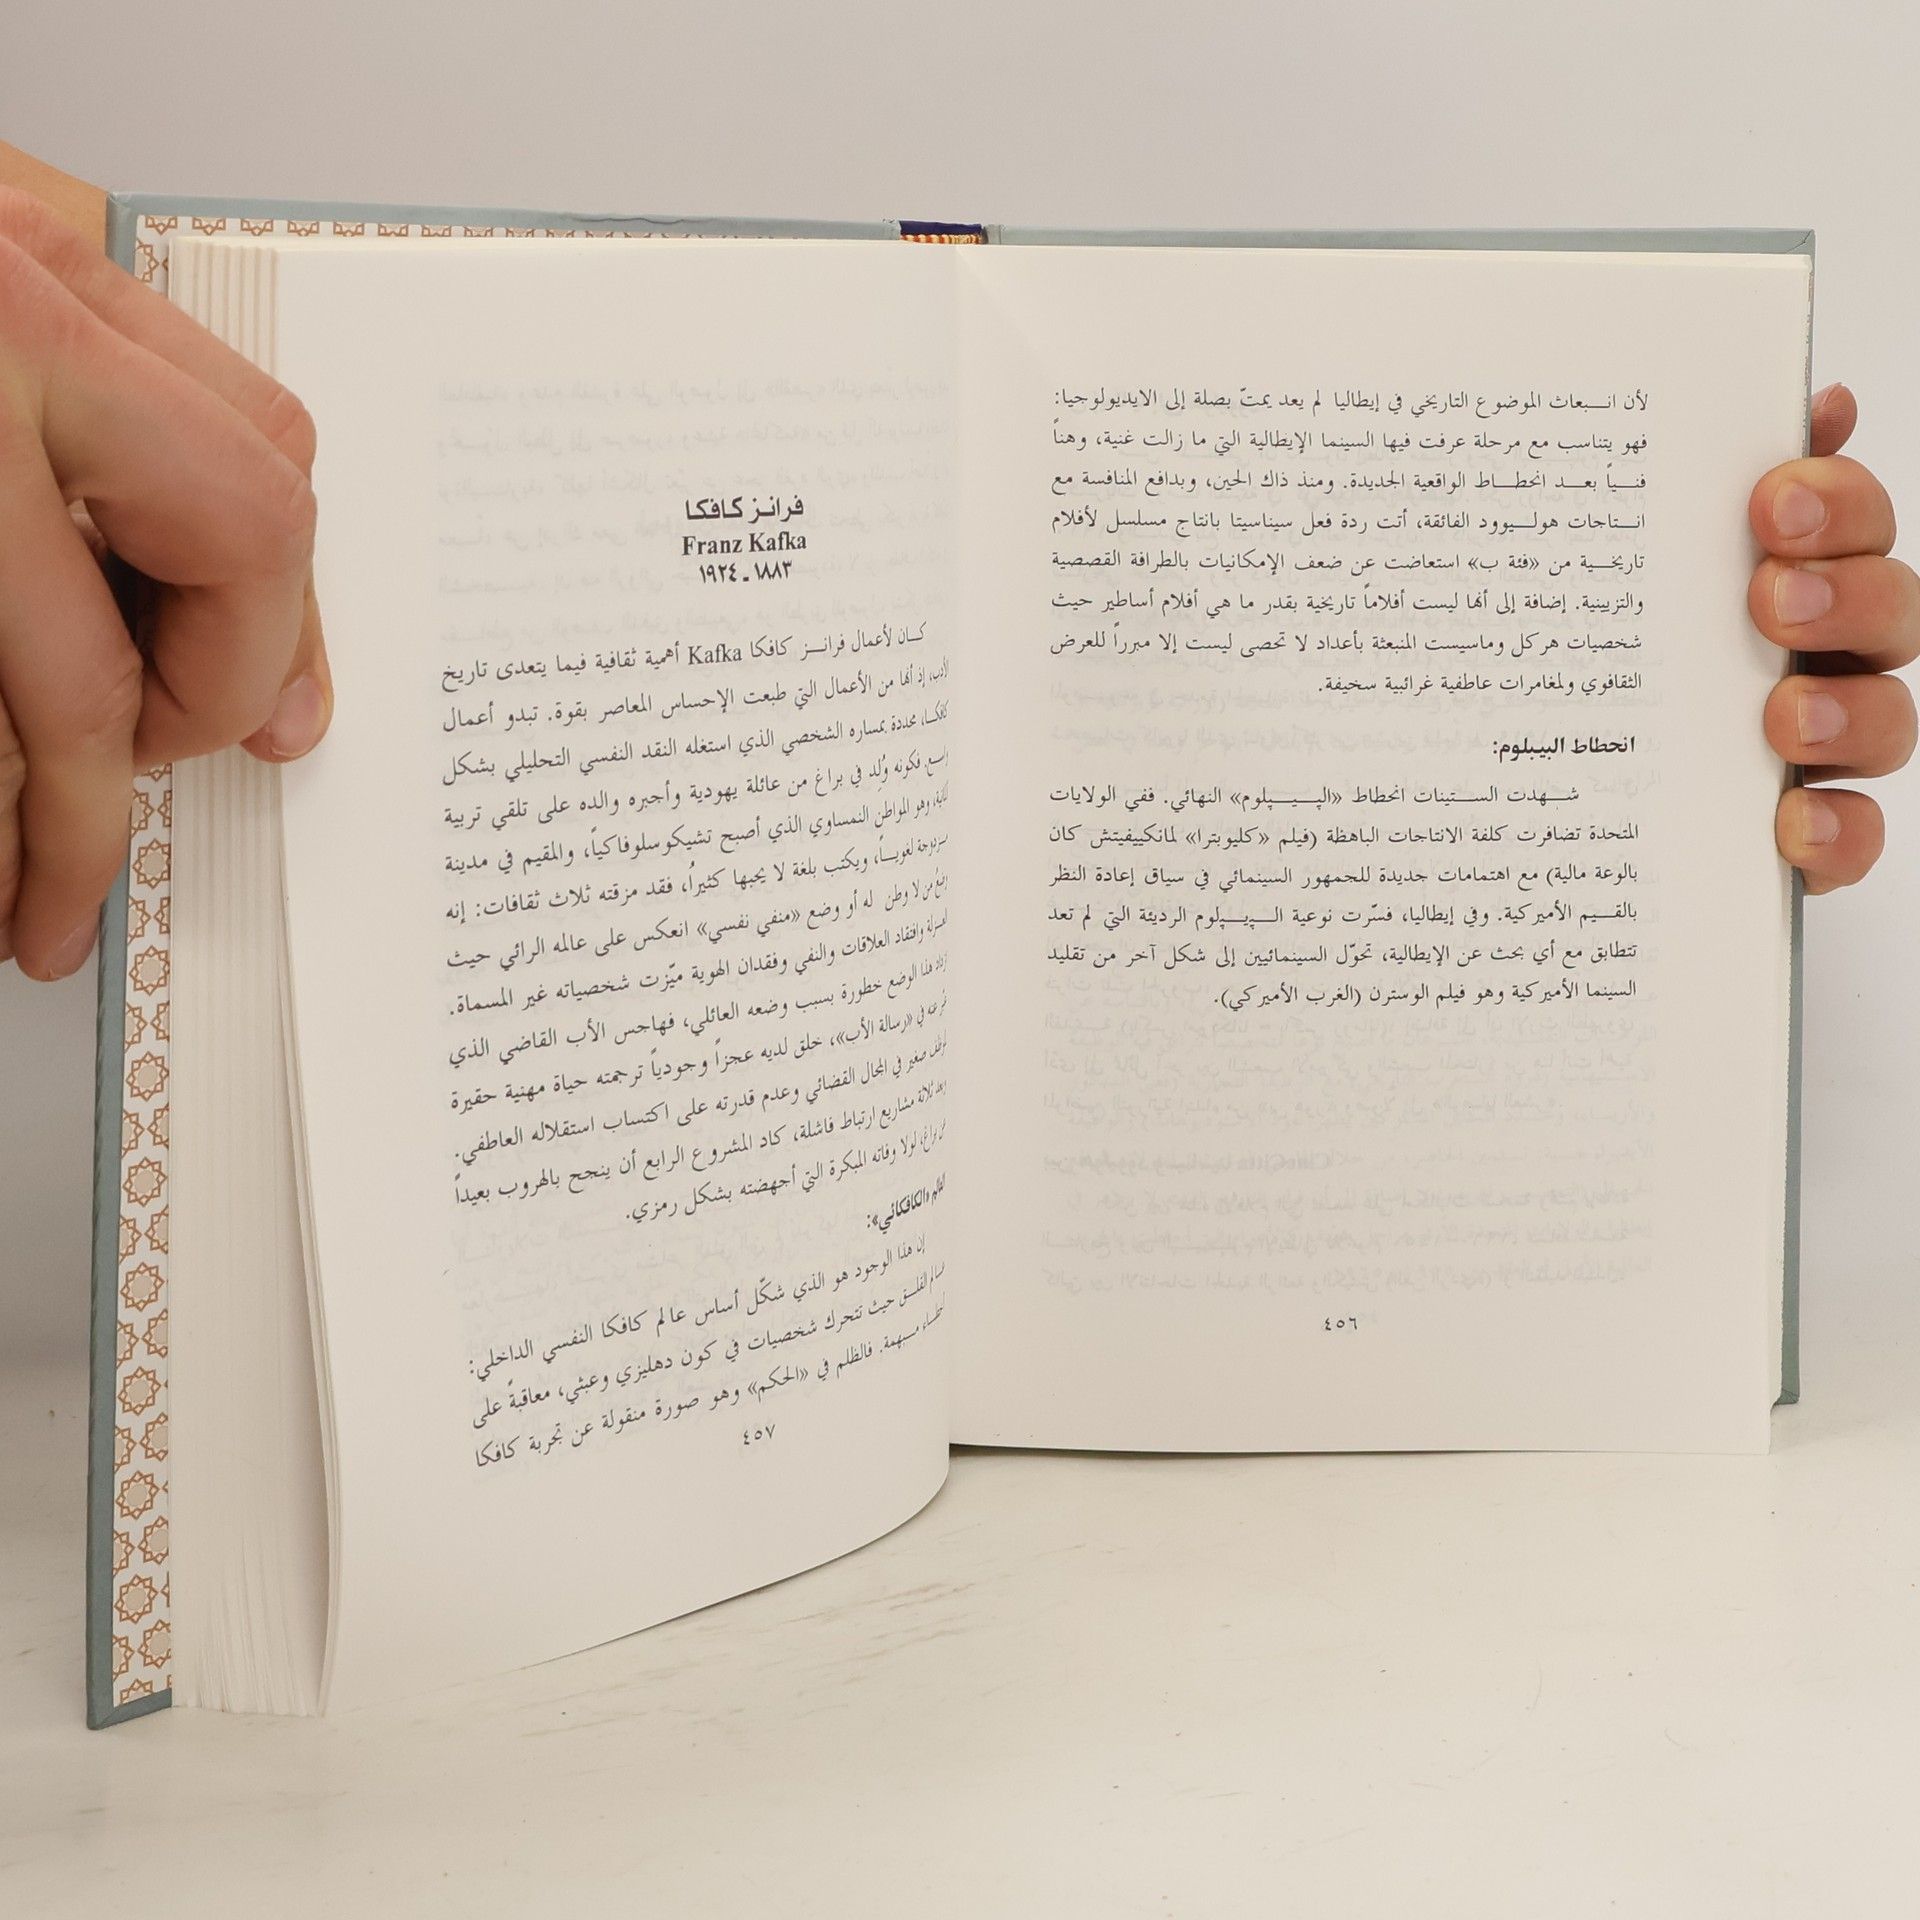 لأن انبعاث الموضوع التاريخي في إيطاليا لم يعد يمتّ بصلة إلى الايديولوجيا:
فهو يتناسب مع مرحلة عرفت فيها السينما الإيطالية التي ما زالت غنية، وهناً
فنياً بعد انحطاط الواقعية الجديدة. ومنذ ذاك الحين، وبدافع المنافسة مع
انتاجات هوليوود الفائقة، أتت ردة فعل سيناسيتا بانتاج مسلسل لأفلام
تاريخية من «فئة ب» استعاضت عن ضعف الإمكانيات بالطرافة القصصية
والتزيينية. إضافة إلى أنها ليست أفلاماً تاريخية بقدر ما هي أفلام أساطير حيث
شخصيات هركل وماسيست المنبعثة بأعداد لا تحصى ليست إلا مبرراً للعرض
الثقافوي ولمغامرات عاطفية غرائبية سخيفة.
انحطاط البيبلوم:
شهدت الستينات انحطاط «الپيپلوم» النهائي. ففي الولايات
المتحدة تضافرت كلفة الانتاجات الباهظة (فيلم «كليوبترا» لمانكييفيتش كان
بالوعة مالية) مع اهتمامات جديدة للجمهور السينمائي في سياق إعادة النظر
بالقيم الأميركية. وفي إيطاليا، فسّرت نوعية الپيپلوم الرديئة التي لم تعد
تتطابق مع أي بحث عن الإيطالية، تحوّل السينمائيين إلى شكل آخر من تقليد
السينما الأميركية وهو فيلم الوسترن (الغرب الأميركي).
٤٥٦
فرانز كافكا
Franz Kafka
١٨٨٣ - ١٩٢٤
كان لأعمال فرانز كافكا Kafka أهمية ثقافية فيما يتعدى تاريخ
الأدب، إذ أنها من الأعمال التي طبعت الإحساس المعاصر بقوة. تبدو أعمال
كافكا، محددة بمساره الشخصي الذي استغله النقد النفسي التحليلي بشكل
واسع. فكونه وُلِد في براغ من عائلة يهودية وأجبره والده على تلقي تربية
وهو المواطن النمساوي الذي أصبح تشيكوسلوفاكياً، والمقيم في مدينة
مزدوجة لغوياً، ويكتب بلغة لا يحبها كثيراً، فقد مزقته ثلاث ثقافات: إنه
وضع من لا وطن له أو وضع «منفي نفسي» انعكس على عالمه الرائي حيث
العزلة وافتقاد العلاقات والنفي وفقدان الهوية ميّزت شخصياته غير المسماة.
هذا الوضع خطورة بسبب وضعه العائلي، فهاجس الأب القاضي الذي
عنه في «رسالة الأب»، خلق لديه عجزاً وجودياً ترجمته حياة مهنية حقيرة
لموظف صغير في المجال القضائي وعدم قدرته على اكتساب استقلاله العاطفي.
وبعد ثلاثة مشاريع ارتباط فاشلة، كاد المشروع الرابع أن ينجح بالهروب بعيداً
عن براغ، لولا وفاته المبكرة التي أجهضته بشكل رمزي.
العالم «الكافكائي»:
إن هذا الوجود هو الذي شكّل أساس عالم كافكا النفسي الداخلي:
عالم القلق حيث تتحرك شخصيات في كون دهليزي وعبثي، معاقبةً على
أخطاء مبهمة. فالظلم في «الحكم» وهو صورة منقولة عن تجربة كافكا
٤٥٧